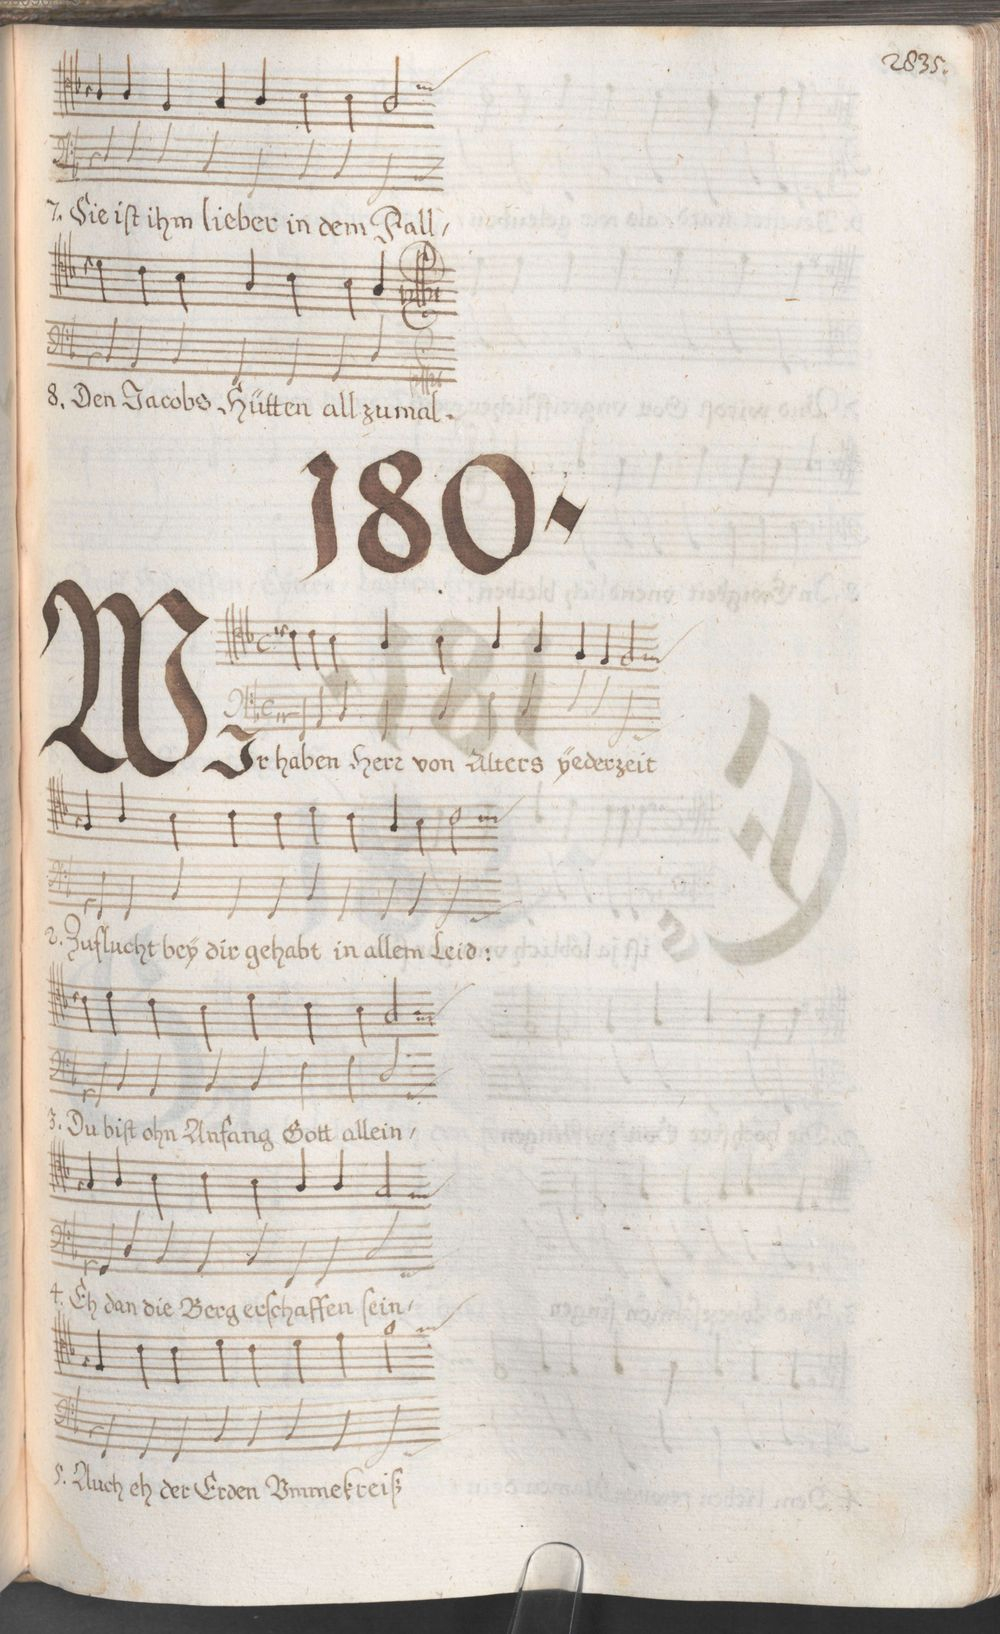 2835.
7. Sie ist ihm lieber in dem Fall,
8. Den Jacobs Hütten all zumal.
180.
WIr haben Herr von Alters ÿederzeit
2. Zuflucht beÿ dir gehabt in allem Leid:
3. Du bist ohn Anfang Gott allein,
4. Eh dan die Berg erschaffen sein,
5. Auch eh der Erden Vmmekreiß